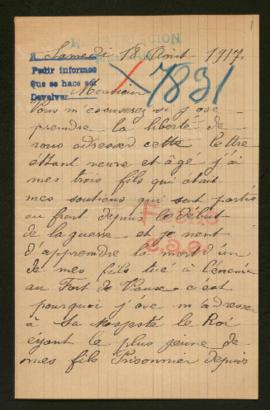 Samedi 18 Août 1917.
Pedir informes
Que se hace sol
Devolver
7831
Monsieur
Vous m'excuserez si j'ose
prendre la liberté de
vous adresser cette lettre
ettant veuve et âgé j'ai
mes trois fils qui était
mes soutiens qui sont partis
au front depuis le début
de la guerre et je
d'apprendre la mort d'un
de mes fils tué à l'ennemi
au Fort de Vaux c'est
pourquoi j'ose m'adresser
à Sa Majesté le Roi
éyant le plus jeune de
mes fils Prisonnier depuis